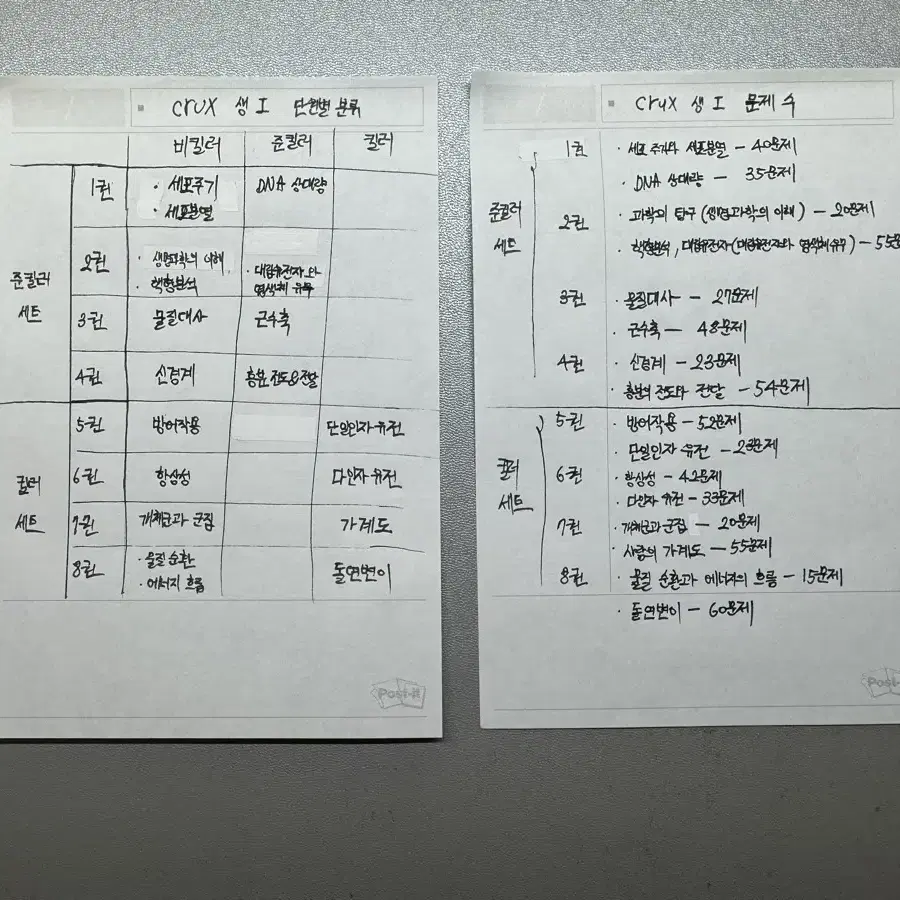 crux 생 I 단원별 분류
비킬러 준킬러 킬러
준킬러 세트
1권 · 세포주기 DNA 상대량
· 세포분열
2권 · 생명과학의 이해,
· 핵형분석 · 대립유전자와 염색체 유무
3권 물질대사 근수축
4권 신경계 흥분 전도&전달
킬러 세트
5권 방어작용 단일인자 유전
6권 항상성 다인자 유전
7권 개체군과 군집 가계도
8권 · 물질 순환 돌연변이
· 에너지 흐름
Post-it
crux 생 I 문제 수
준킬러 세트
1권 · 세포 주기와 세포분열 - 40문제
· DNA 상대량 - 35문제
2권 · 과학의 탐구 (생명과학의 이해) - 20문제
· 핵형분석, 대립유전자(대립유전자와 염색체유무) - 55문
3권 · 물질대사 - 27문제
· 근수축 - 48문제
4권 · 신경계 - 23문제
· 흥분의 전도와 전달 - 54문제
킬러 세트
5권 · 방어작용 - 52문제
· 단일인자 유전 - 28문제
6권 · 항상성 - 42문제
· 다인자 유전 - 33문제
7권 · 개체군과 군집 - 20문제
· 사람의 가계도 - 55문제
8권 · 물질 순환과 에너지의 흐름 - 15문제
· 돌연변이 - 60문제
Post-